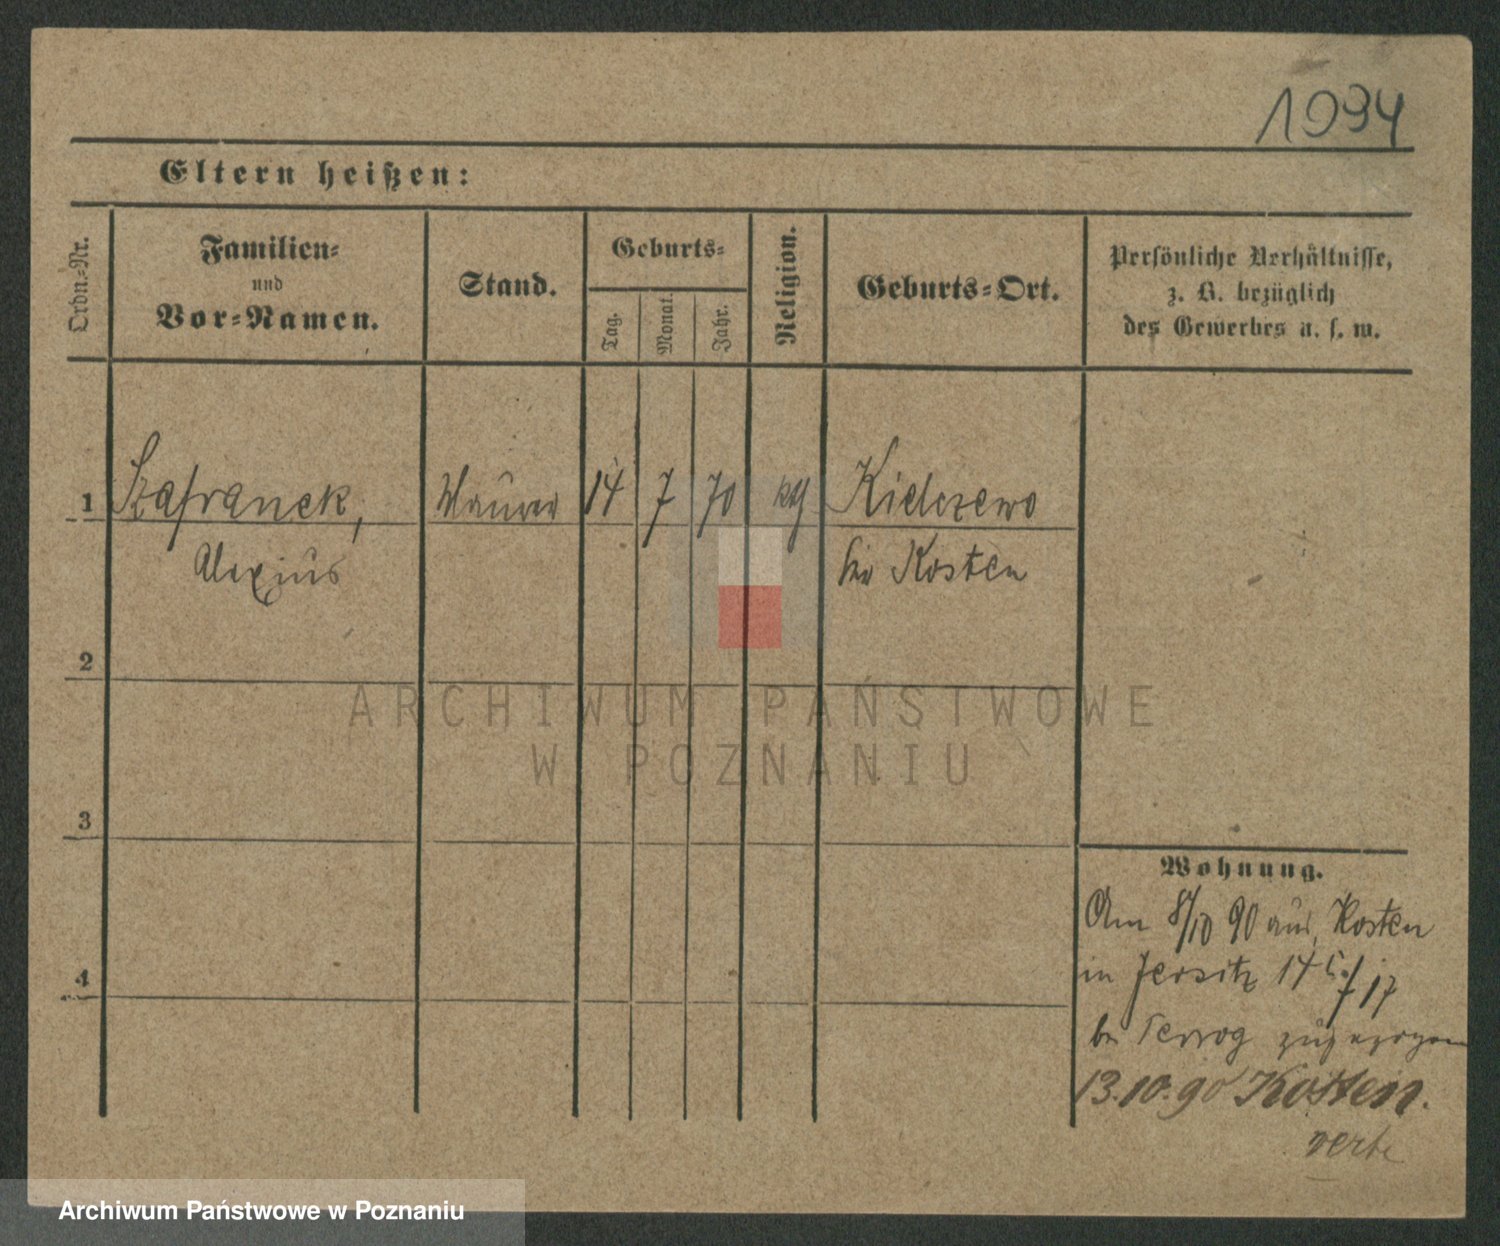 1934
Eltern heißen:
Ordn.=Nr.
Familien=
und
Vor=Namen.
Stand.
Geburts=
Tag.
Monat.
Jahr.
Religion.
Geburts=Ort.
Persönliche Verhältnisse,
z. B. bezüglich
des Gewerbes u. s. w.
1 Szafranek, Maurer 14 7 70 kth Kielczewo
Alexius bei Kosten
2
ARCHIWUM PAŃSTWOWE
W POZNANIU
3
Wohnung.
Am 8/10 90 aus Kosten
4
in Jersitz 14
bei zugezogen
13.10.90 Kosten.
verte
Archiwum Państwowe w Poznaniu